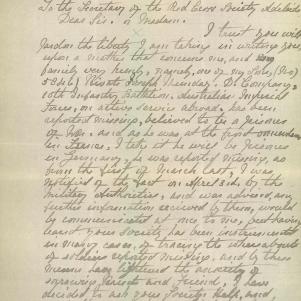 To the Secretary of the Red Cross Society Adelaide
Dear Sir. or Madam.
I trust you will
Pardon the liberty I am taking in writing you
upon a matter that concerns me, and
family very keenly, namely, one of my Sons, (No)
Private D. Company
10th Infantry Battalion, Australian Imperial
Forces, on active service abroad, has been
reported missing, believed to be a prisoner
of War. and as he was at the front
in France, I take it he will be Prisoner
in Germany, he was reported missing, as
from the first of March last, I was
notified of the fact on April 3rd, by the
Military Authorities, and was advised, any
further information received by them, would
be communicated at once to me, but having
heard your Society has been instrumental
in many cases, of tracing the whereabouts
of soldiers reported missing, and by these
means have lightened the anxiety of
sorrowing Parents and Friends, I have
decided to ask your Society's help, and